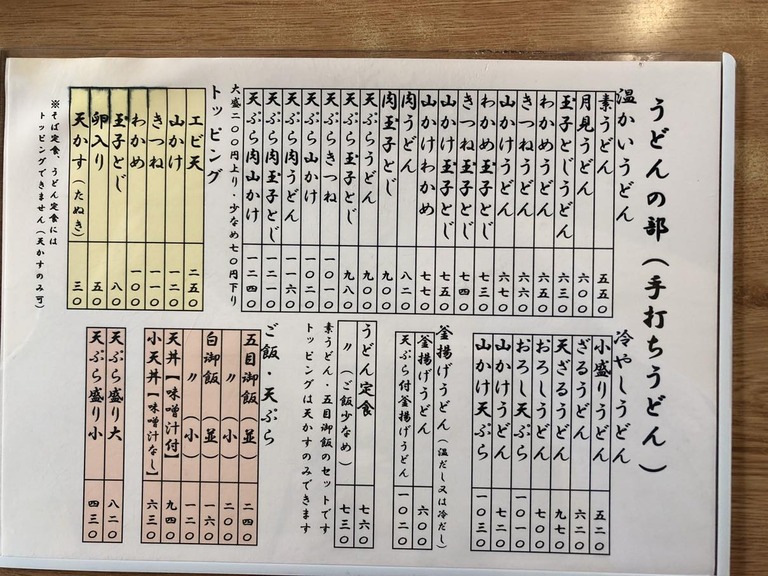 うどんの部(手打ちうどん)
温かいうどん
素うどん 五五〇
月見うどん 六〇〇
玉子とじうどん 六三〇
わかめうどん 六五〇
きつねうどん 六六〇
山かけうどん 六七〇
わかめ玉子とじ 七三〇
きつね玉子とじ 七四〇
山かけ玉子とじ 七五〇
山かけわかめ 七七〇
肉うどん 八二〇
肉玉子とじ 九〇〇
天ぷらうどん 九〇〇
天ぷら玉子とじ 九八〇
天ぷらきつね 一〇一〇
天ぷら山かけ 一〇二〇
天ぷら肉うどん 一一六〇
天ぷら肉玉子とじ 一二一〇
天ぷら肉山かけ 一二四〇
大盛二〇〇円上り・少なめ七〇円下り
トッピング
エビ天 二五〇
山かけ 一二〇
きつね 一一〇
わかめ 一〇〇
玉子とじ 八〇
卵入り 五〇
天かす(たぬき) 三〇
※そば定食、うどん定食には
トッピングできません(天かすのみ可)
冷やしうどん
小盛りうどん 五二〇
ざるうどん 六二〇
天ざるうどん 九七〇
おろしうどん 七〇〇
おろし天ぷら 一〇一〇
山かけうどん 七二〇
山かけ天ぷら 一〇三〇
釜揚げうどん(温だし又は冷だし)
釜揚げうどん 六〇〇
天ぷら付釜揚げうどん 一〇二〇
うどん定食 七六〇
〃(ご飯少なめ) 七三〇
素うどん・五目御飯のセットです
トッピングは天かすのみできます
ご飯・天ぷら
五目御飯(並) 二四〇
〃(小) 二〇〇
白御飯(並) 一六〇
〃(小) 一二〇
天丼【味噌汁付】 九四〇
小天丼【味噌汁なし】 六三〇
天ぷら盛り大 八二〇
天ぷら盛り小 四三〇